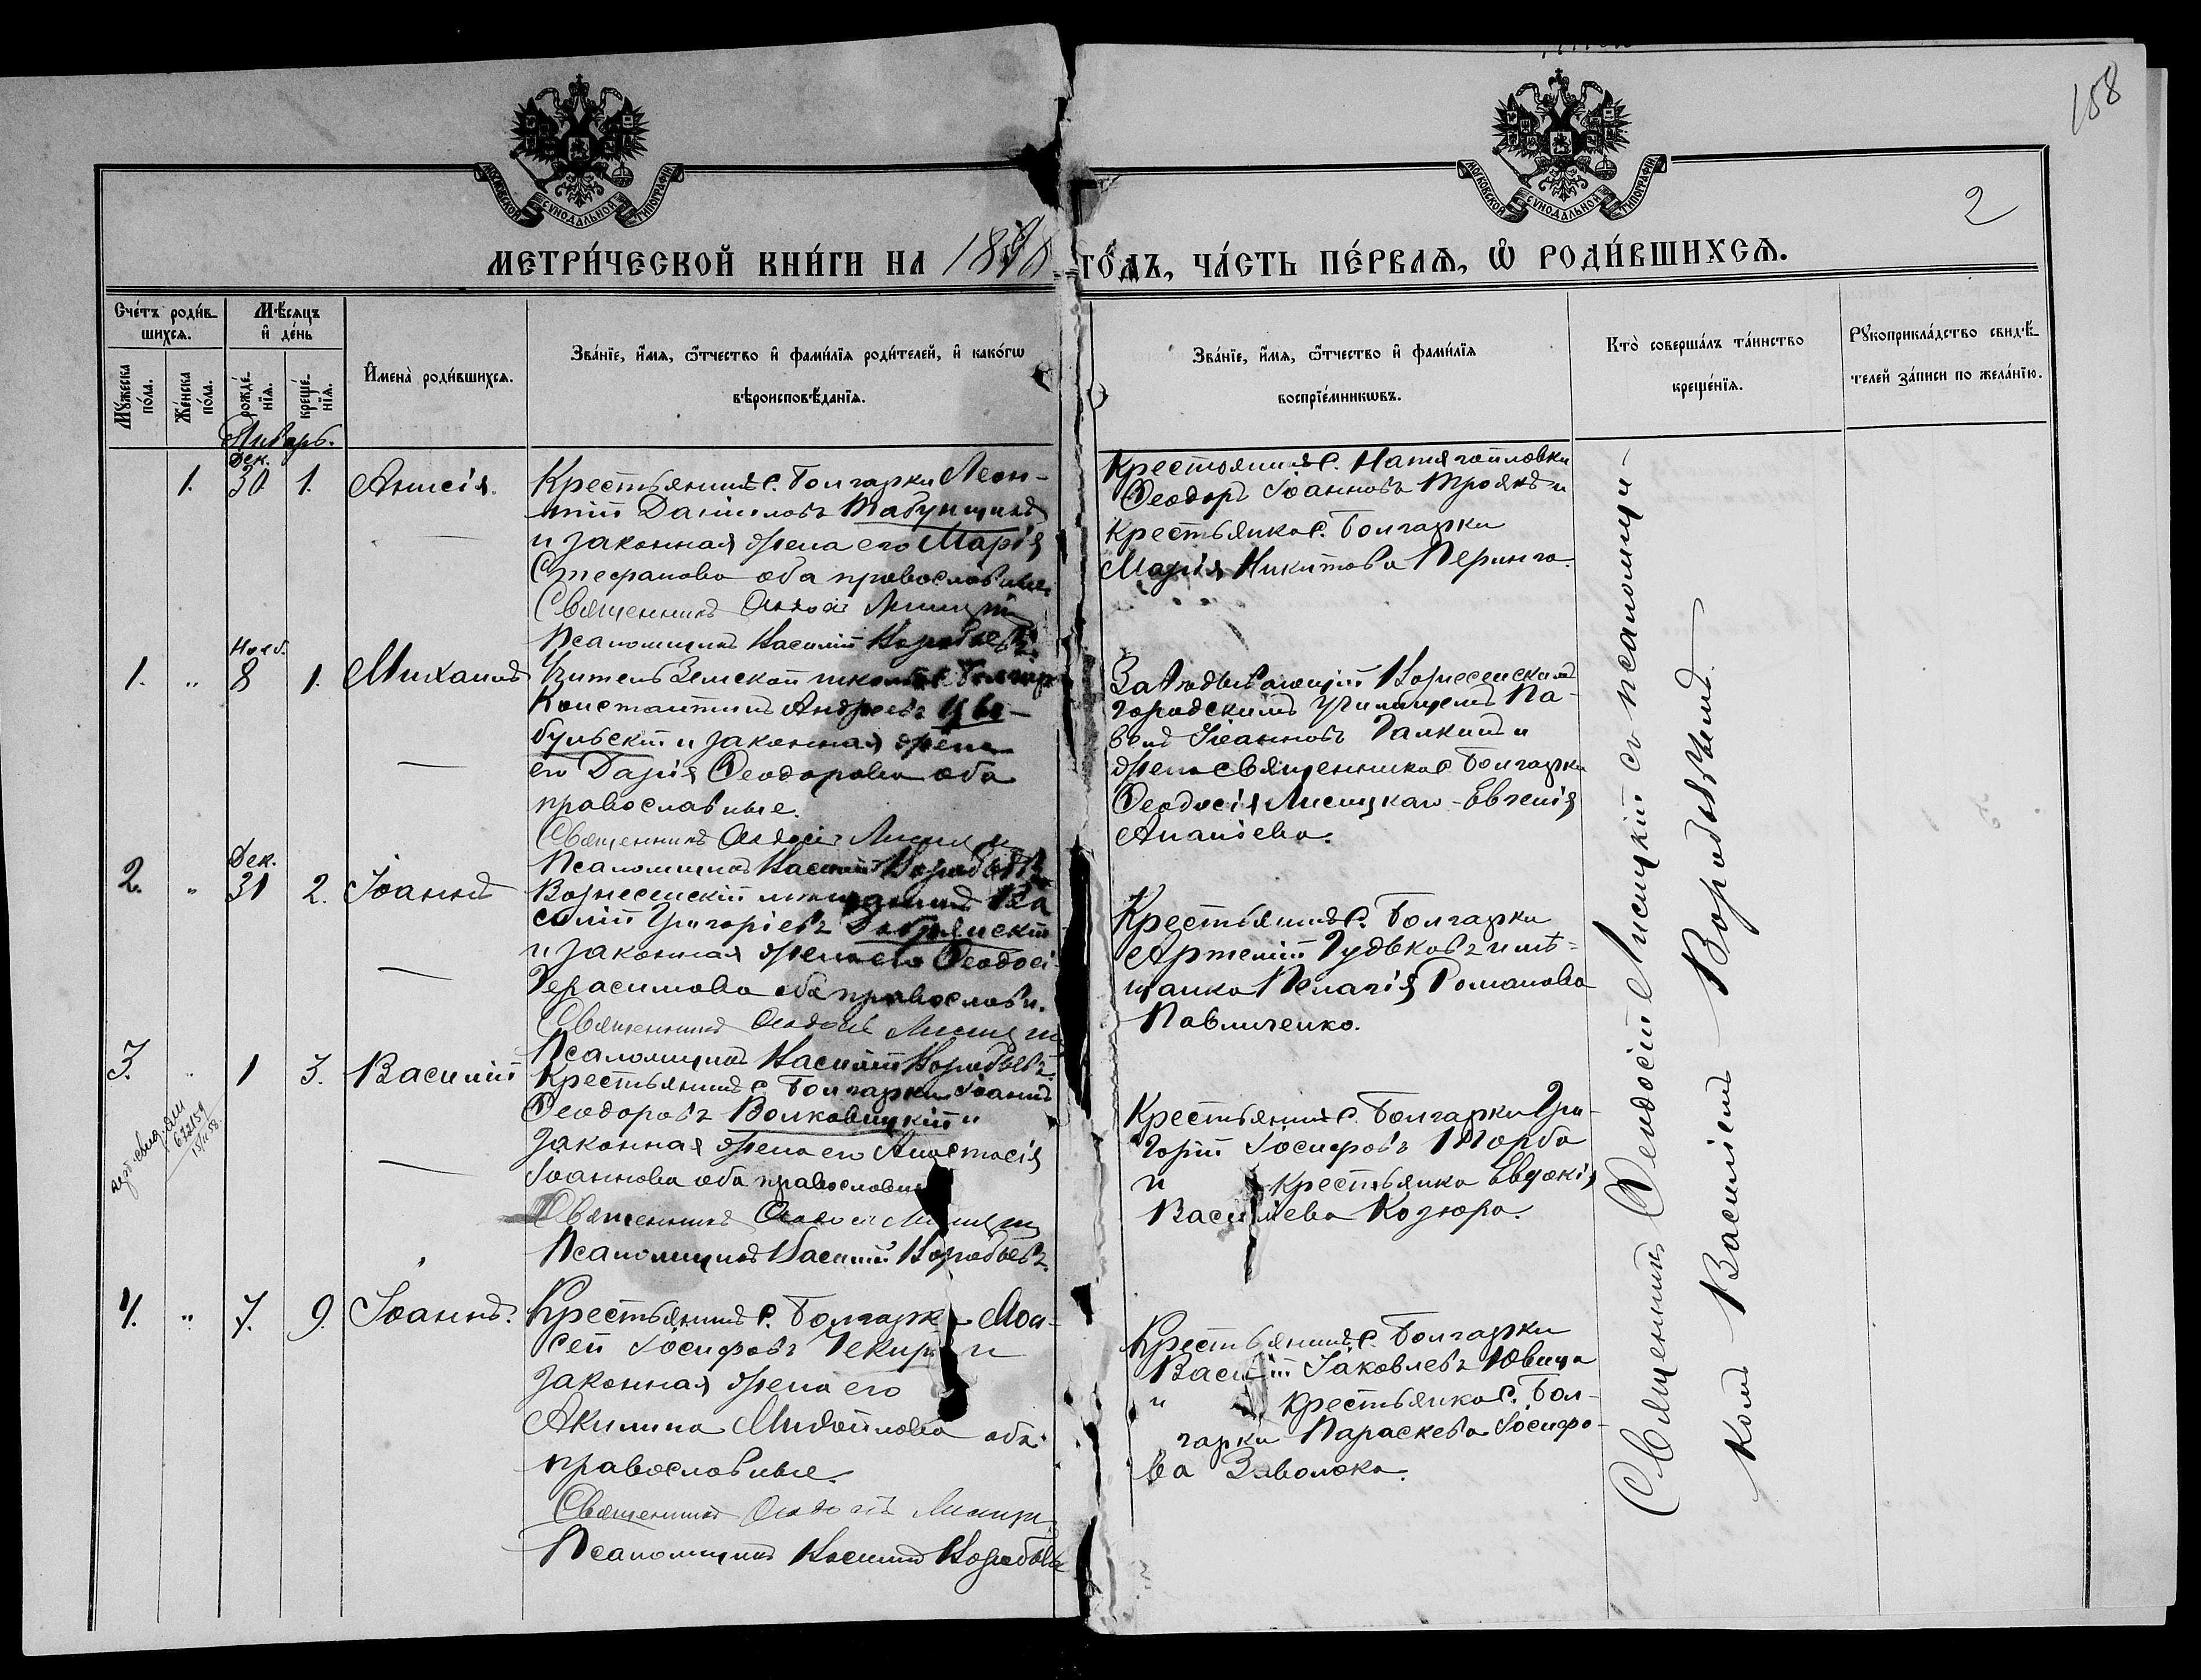 158
МОСКОВСКОЙ СѴНОДАЛЬНОЙ ТИПОГРАФІИ
МОСКОВСКОЙ СѴНОДАЛЬНОЙ ТИПОГРАФІИ
2
МЕТРИ́ЧЕСКОЙ КНИ́ГИ НА 1898 ГО́ДЪ, ЧА́СТЬ ПЕ́РВАѦ, Ѡ҆ РОДИ́ВШИХСѦ.
Сче́тъ роди́в-
шихсѧ.
Мꙋ́жеска по́ла.
Же́нска по́ла.
Мѣ́сѧцъ
и҆ де́нь
рожде́-
нїѧ.
креще́-
нїѧ.
И҆мена̀ роди́вшихсѧ.
Зва́нїе, и҆́мѧ, ѻ҆́тчество и҆ фами́лїѧ роди́телей, и҆ како́гѡ
вѣроисповѣ́данїѧ.
Зва́нїе, и҆́мѧ, ѻ҆́тчество и҆ фами́лїѧ
воспрїе́мникѡвъ.
Кто̀ соверша́лъ та́инство
креще́нїѧ.
Рꙋкоприкла́дство свидѣ́-
телей за́писи по жела́нїю.
Январь.
Дек.
1. 30 1. Анисія.
Крестьянинъ с. Болгарки Леон-
тій Даниловъ Табунщикъ
и законная жена его Марія
Стефанова оба православные.
Священникъ Ѳеодосій Лисицкій
Псаломщикъ Василій Воробьевъ.
Крестьянинъ с.
Ѳеодоръ Іоанновъ Троянъ и
крестьянка с. Болгарки
Марія Никитова Перинга.
Нояб.
1. " 8 1. Михаилъ
Учитель Земской школы с. Болгарки
Константинъ Андреевъ
и законная жена
его Дарія Ѳеодорова оба
православные.
Священникъ Ѳеодосій Лисицкій
Псаломщикъ Василій Воробьевъ
Завѣдывающій Вознесенскимъ
городскимъ училищемъ Па-
велъ Іоанновъ Галкинъ и
жена священника с. Болгарки
Ѳеодосія Лисицкаго - Евгенія
Ананіева.
Дек.
2. " 31 2. Іоаннъ
Вознесенскій мѣщанинъ Ва
силій Григоріевъ
и законная жена его Ѳеодосі
Герасимова оба православн.
Священникъ Ѳеодосій Лисицкій
Псаломщикъ Василій Воробьевъ.
Крестьянинъ с. Болгарки
Артемій Гудьковъ и мѣ-
щанка Пелагія Романова
Павличенко.
3. " 1 3. Василій
Крестьянинъ с. Болгарки Іоаннъ
Ѳеодоровъ Волковицкій и
законная жена его Анастасія
Іоаннова оба православн
Священникъ Ѳеодосій Лисицкій
Псаломщикъ Василій Воробьевъ.
Крестьянинъ с. Болгарки Гри-
горій Іосифовъ Торба
и крестьянка Евдокія
Василіева Козюра.
4. " 7. 9. Іоаннъ.
Крестьянинъ с. Болгарк Мои-
сей Іосифовъ и
законная жена его
Акилина Михайлова оба
православные.
Священникъ Ѳеодосій Лисицкій
Псаломщикъ Василій Воробьевъ
Крестьянинъ с. Болгарки
Василій Іаковлевъ Ювица
и крестьянка с. Бол-
гарки Параскева Іосифо-
ва Заволока.
Священникъ Ѳеодосій Лисицкій съ псаломщи-
комъ Василіемъ Воробьевымъ.